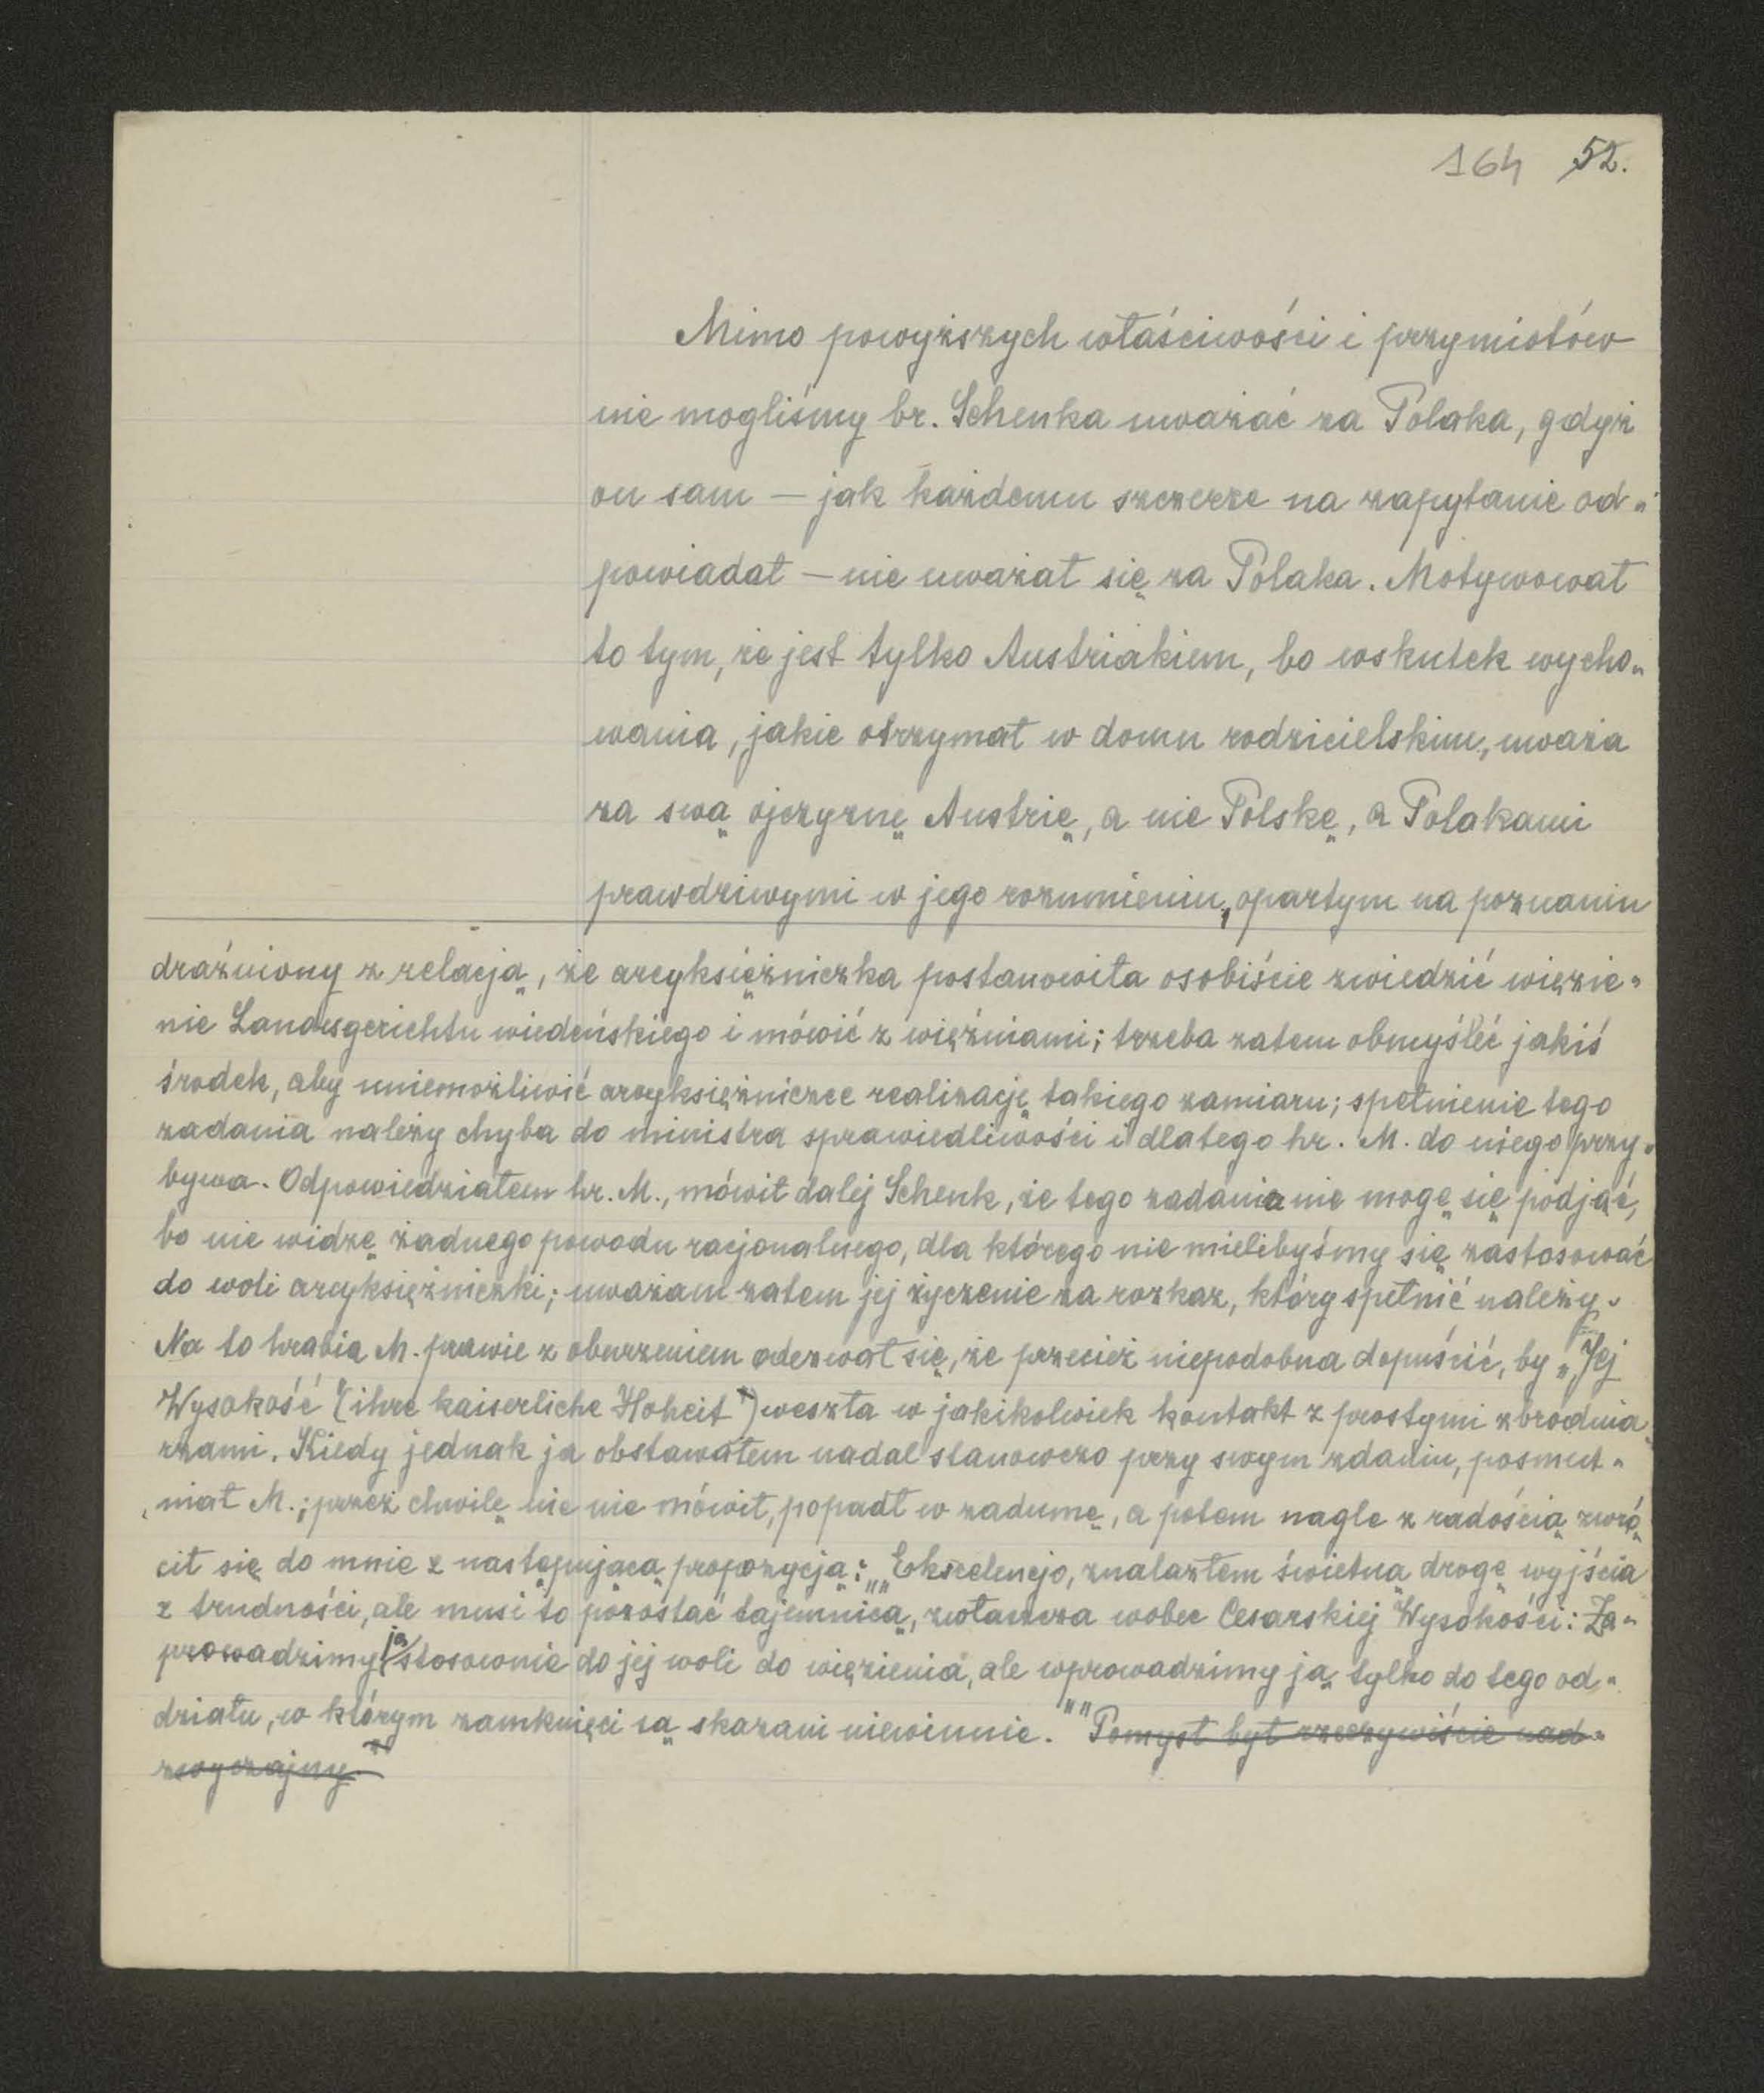 164 52.
Mimo powyższych właściwości i przymiotów
nie mogliśmy br. Schenka uważać za Polaka, gdyż
on sam — jak każdemu szczerze na zapytanie od„
powiadał — nie uważał się za Polaka. Motywował
to tym, że jest tylko Austriakiem, bo wskutek wycho„
wania, jakie otrzymał w domu rodzicielskim, uważa
za swą ojczyznę Austrię, a nie Polskę, a Polakami
prawdziwymi w jego rozumieniu, opartym na poznaniu
drażniony z relacją, że arcyksiężniczka postanowiła osobiście zwiedzić więzie„
nie Landesgerichtu wiedeńskiego i mówić z więźniami; trzeba zatem obmyśleć jakiś
środek, aby uniemożliwić arcyksiężniczce realizację takiego zamiaru; spełnienie tego
zadania należy chyba do ministra sprawiedliwości i dlatego hr. M. do niego przy„
bywa. Odpowiedziałem hr. M., mówił dalej Schenk, że tego zadania nie mogę się podjąć,
bo nie widzę żadnego powodu racjonalnego, dla którego nie mielibyśmy się zastosować
do woli arcyksiężniczki; uważam zatem jej życzenie za rozkaz, który spełnić należy.
Na to hrabia M. prawie z oburzeniem odezwał się, że przecież niepodobna dopuścić, by „Jej
Wysokość" (ihre kaiserliche Hoheit") weszła w jakikolwiek kontakt z prostymi zbrodnia„
rzami. Kiedy jednak ja obstawałem nadal stanowczo przy swym zdaniu, posmut„
niał M.; przez chwilę nic nie mówił, popadł w zadumę, a potem nagle z radością zwró„
cił się do mnie z następującą propozycją: „„Ekscelencjo, znalazłem świetną drogę wyjścia
z trudności, ale musi to pozostać tajemnicą, zwłaszcza wobec Cesarskiej Wysokości: Za„
prowadzimy ją stosownie do jej woli do więzienia, ale wprowadzimy ją tylko do tego od„
działu, w którym zamknięci są skazani niewinnie."" Pomysł był rzeczywiście nad„
zwyczajny."